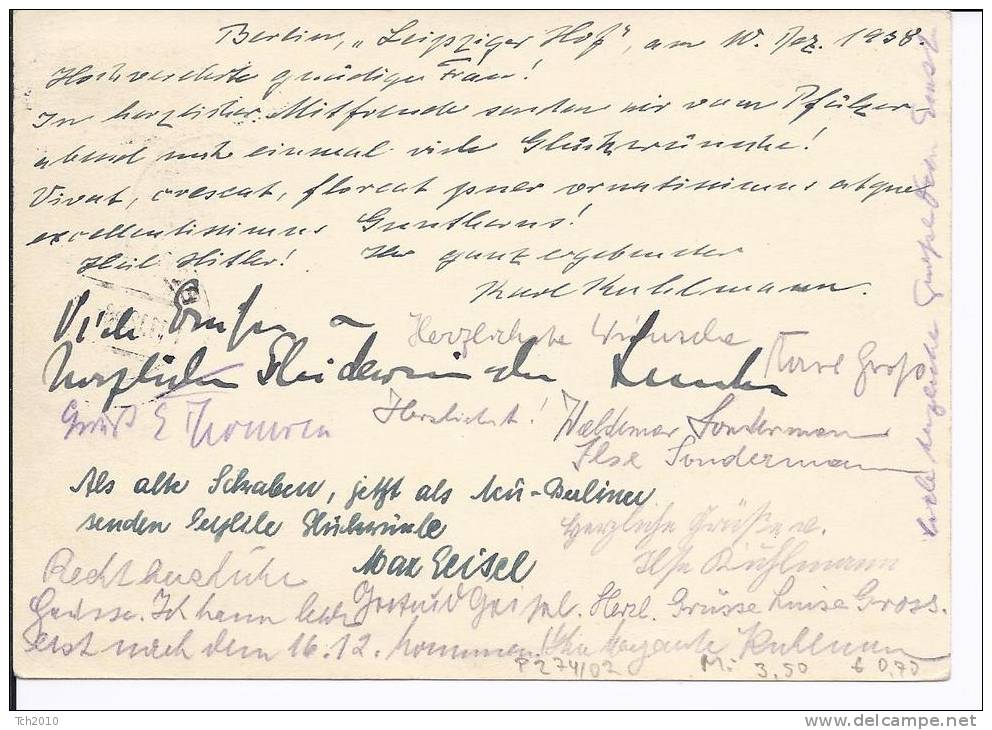 Berlin, „Leipziger Hof", am 10. Dez. 1938.
Hochverehrte gnädige Frau!
In herzlicher Mitfreude senden wir vom Pfälzer
abend noch einmal viele Glückwünsche!
Vivat, crescat, floreat puer ornatissimus atque
excellentissimus Guntherus!
Heil Hitler! Ihr ganz ergebender
Karl Kuhlmann.
Viele
Herzlichste Wünsche
Karl Groß
herzlichen
Gruß E
Herzlichst! Waldemar Sondermann
Ilse Sondermann
Als alte Schwaben, jetzt als Neu-Berliner
senden
Max Geisel
Herzliche Grüße v.
Ilse Kuhlmann
Recht herzliche
Grüsse. Ich kann leider
Gertrud Geisel. Herzl. Grüsse Luise Gross.
erst nach dem 16.12. kommen. Ihre Margarete Kuhlmann
P274/02 M: 3,50 € 0,70
Tch2010
www.delcampe.net